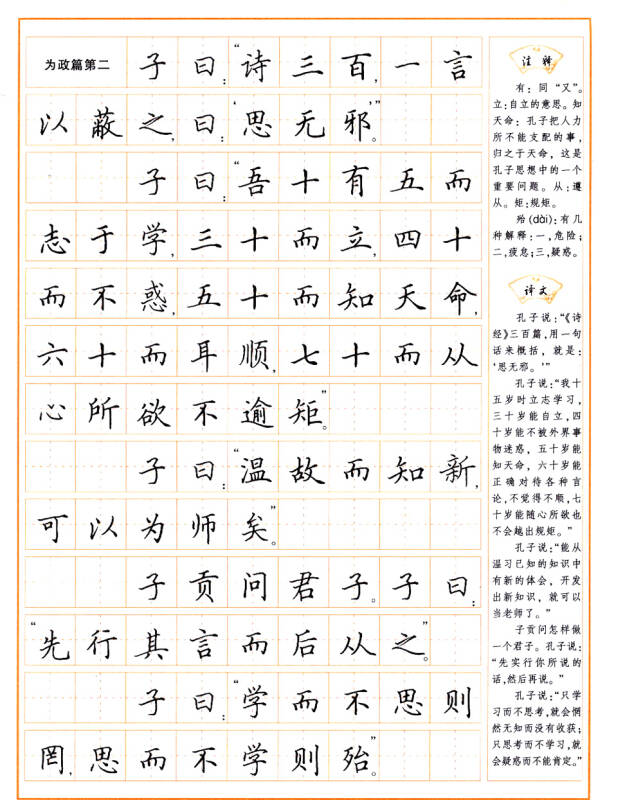 为政篇第二 子曰：“诗三百，一言
以蔽之，曰：‘思无邪’”。
子曰：“吾十有五而
志于学，三十而立，四十
而不惑，五十而知天命，
六十而耳顺，七十而从
心所欲不逾矩”。
子曰：“温故而知新，
可以为师矣”。
子贡问君子。子曰：
“先行其言而后从之”。
子曰：“学而不思则
罔，思而不学则殆”。
注释
有：同“又”。
立：自立的意思。知
天命：孔子把人力
所不能支配的事，
归之于天命，这是
孔子思想中的一个
重要问题。从：遵
从。矩：规矩。
殆(dài)：有几
种解释：一，危险；
二，疲怠；三，疑惑。
译文
孔子说：“《诗
经》三百篇，用一句
话来概括，就是：
‘思无邪。’”
孔子说：“我十
五岁时立志学习，
三十岁能自立，四
十岁能不被外界事
物迷惑，五十岁能
知天命，六十岁能
正确对待各种言
论，不觉得不顺，七
十岁能随心所欲也
不会越出规矩。”
孔子说：“能从
温习已知的知识中
有新的体会，开发
出新知识，就可以
当老师了。”
子贡问怎样做
一个君子。孔子说：
“先实行你所说的
话，然后再说。”
孔子说：“只学
习而不思考，就会惘
然无知而没有收获；
只思考而不学习，就
会疑惑而不能肯定。”